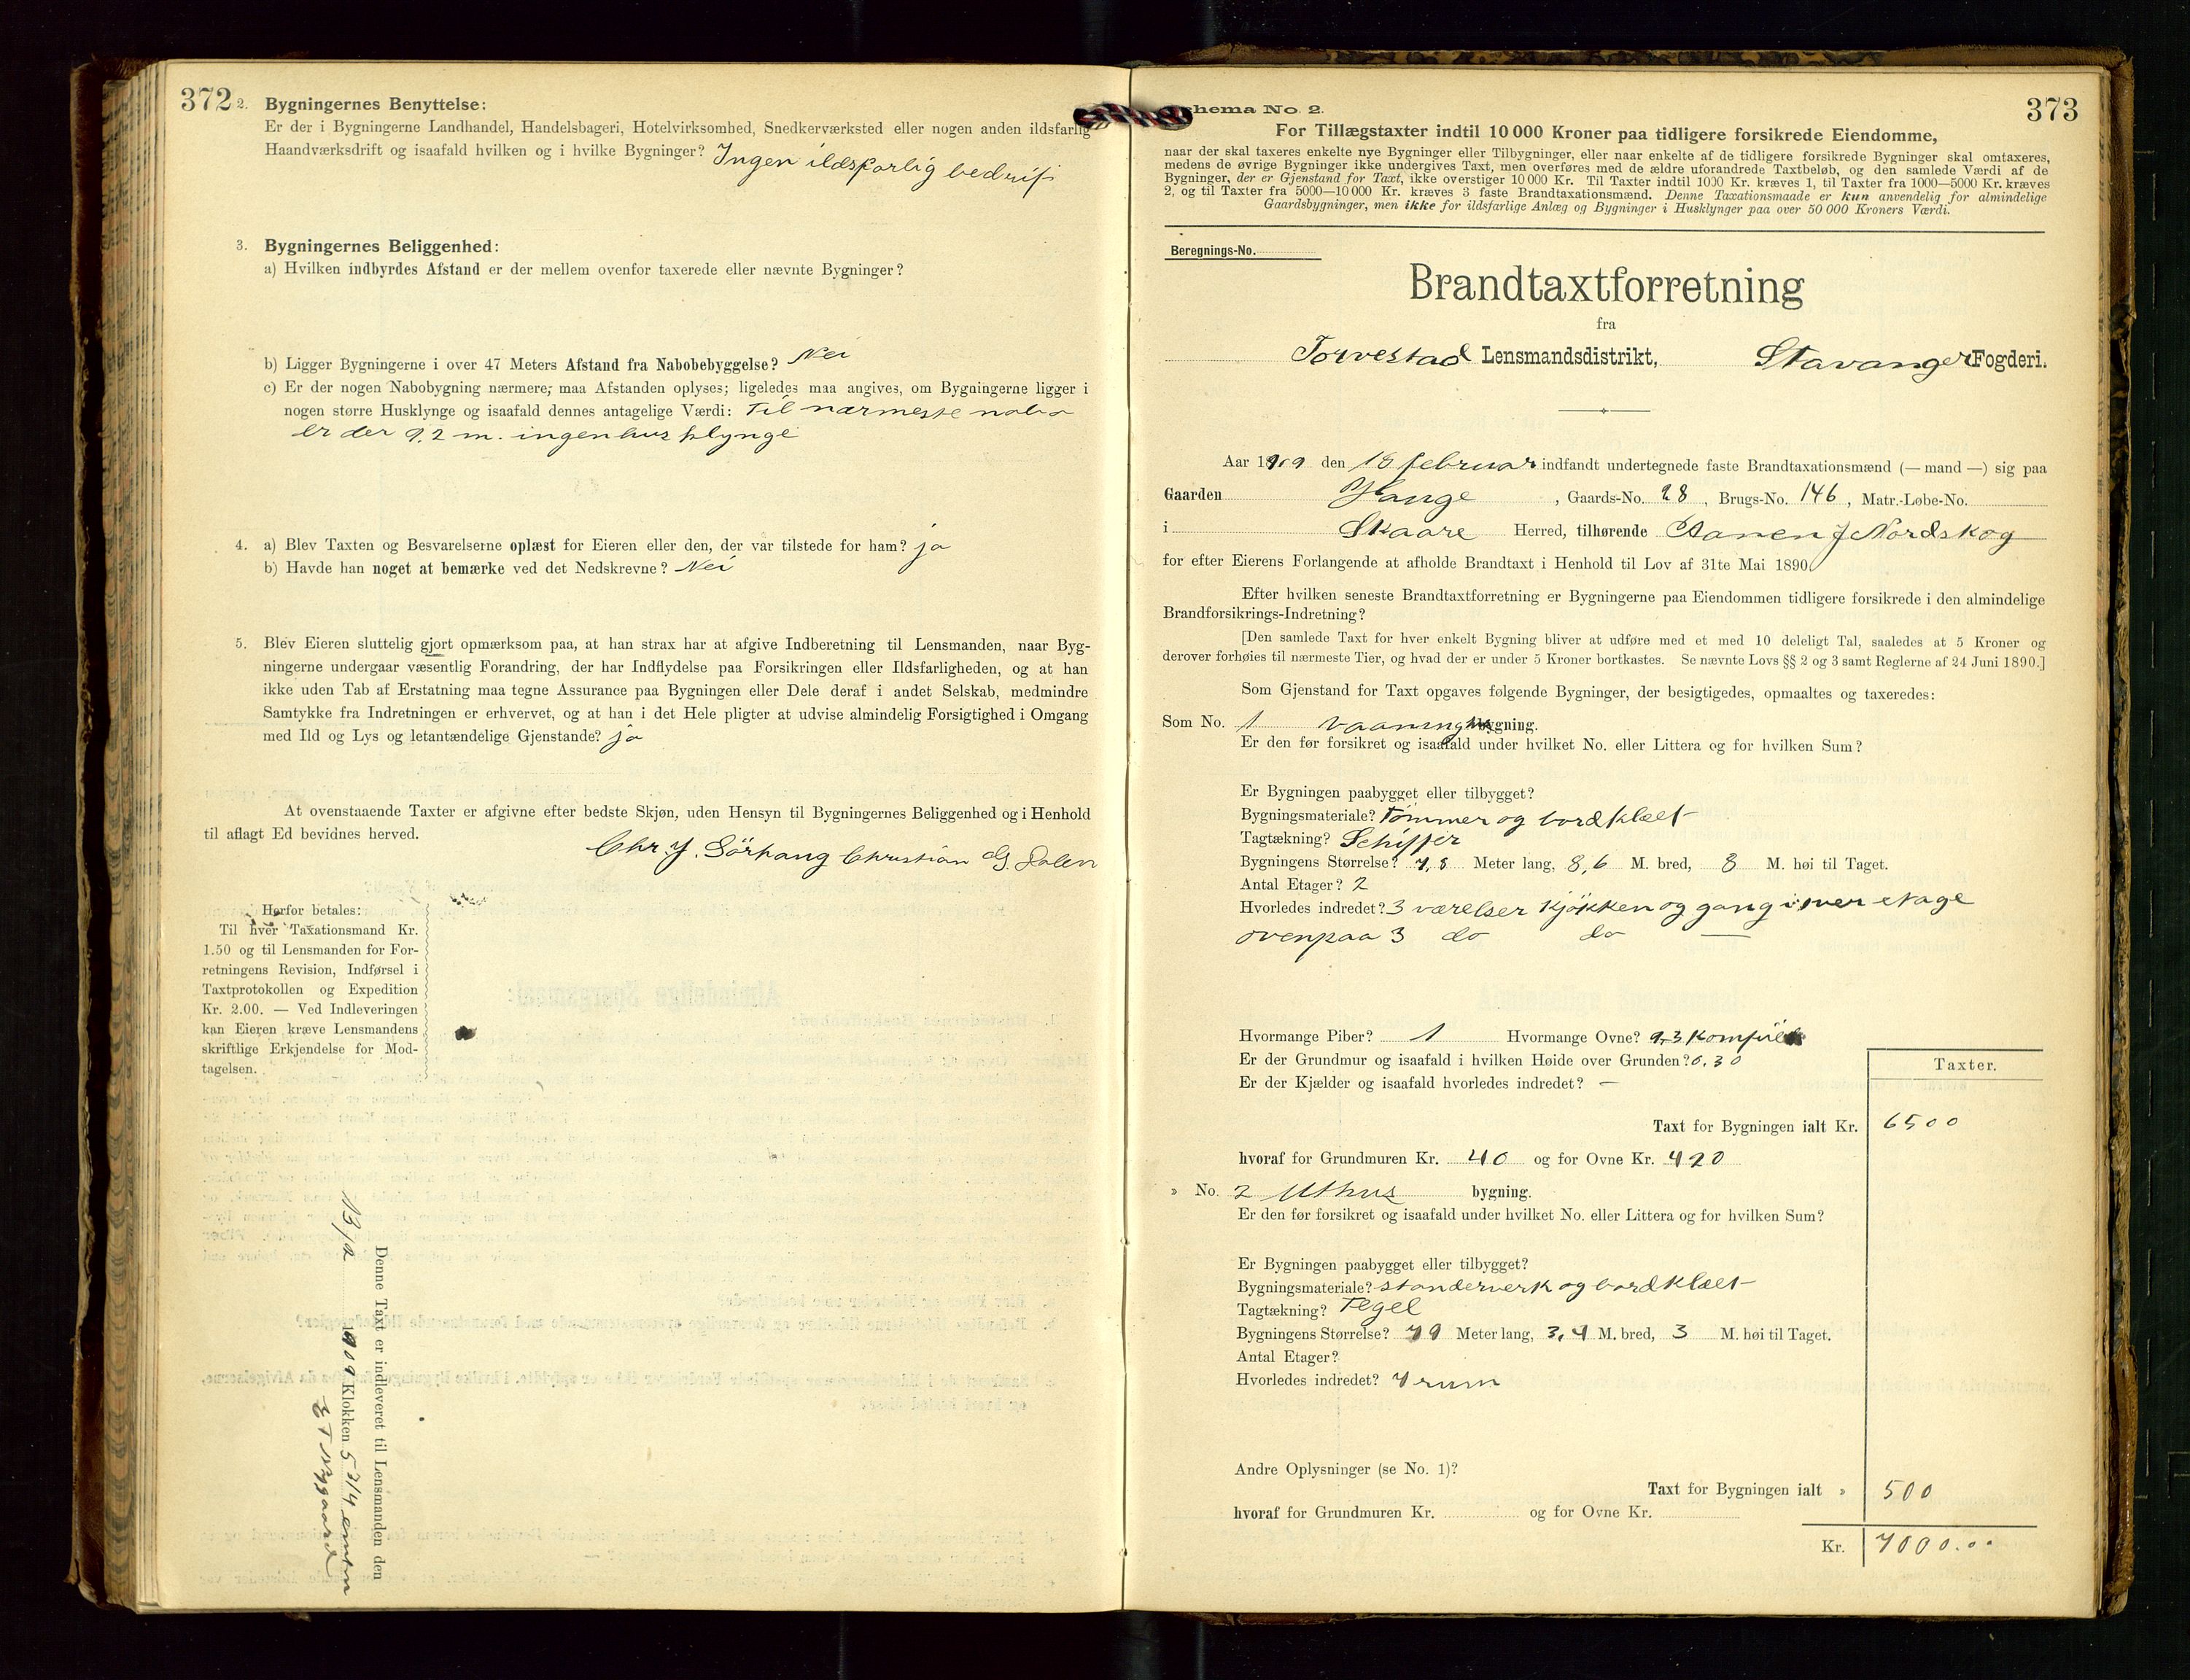 372
2. Bygningernes Benyttelse:
Er der i Bygningerne Landhandel, Handelsbageri, Hotelvirksomhed, Snedkerværksted eller nogen anden ildsfarlig
Haandværksdrift og isaafald hvilken og i hvilke Bygninger? Ingen ildsfarlig bedrift
3. Bygningernes Beliggenhed:
a) Hvilken indbyrdes Afstand er der mellem ovenfor taxerede eller nævnte Bygninger?
b) Ligger Bygningerne i over 47 Meters Afstand fra Nabobebyggelse? Nei
c) Er der nogen Nabobygning nærmere, maa Afstanden oplyses; ligeledes maa angives, om Bygningerne ligger i
nogen større Husklynge og isaafald dennes antagelige Værdi: Til nærmeste nabo
er der 9,2 m. ingen hus klynge
4. a) Blev Taxten og Besvarelserne oplæst for Eieren eller den, der var tilstede for ham? ja
b) Havde han noget at bemærke ved det Nedskrevne? Nei
5. Blev Eieren sluttelig gjort opmærksom paa, at han strax har at afgive Indberetning til Lensmanden, naar Byg-
ningerne undergaar væsentlig Forandring, der har Indflydelse paa Forsikringen eller Ildsfarligheden, og at han
ikke uden Tab af Erstatning maa tegne Assurance paa Bygningen eller Dele deraf i andet Selskab, medmindre
Samtykke fra Indretningen er erhvervet, og at han i det Hele pligter at udvise almindelig Forsigtighed i Omgang
med Ild og Lys og letantændelige Gjenstande? ja
At ovenstaaende Taxter er afgivne efter bedste Skjøn, uden Hensyn til Bygningernes Beliggenhed og i Henhold
til aflagt Ed bevidnes herved.
Chr. J. Sörhaug Christian G. Dalen
Herfor betales:
Til hver Taxationsmand Kr.
1.50 og til Lensmanden for For-
retningens Revision, Indførsel i
Taxtprotokollen og Expedition
Kr. 2.00. — Ved Indleveringen
kan Eieren kræve Lensmandens
skriftlige Erkjendelse for Mod-
tagelsen.
Denne Taxt er indleveret til Lensmanden den
1909 Klokken 5 3/4 emtn
373
Schema No. 2.
For Tillægstaxter indtil 10 000 Kroner paa tidligere forsikrede Eiendomme,
naar der skal taxeres enkelte nye Bygninger eller Tilbygninger, eller naar enkelte af de tidligere forsikrede Bygninger skal omtaxeres,
medens de øvrige Bygninger ikke undergives Taxt, men overføres med de ældre uforandrede Taxtbeløb, og den samlede Værdi af de
Bygninger, der er Gjenstand for Taxt, ikke overstiger 10 000 Kr. Til Taxter indtil 1000 Kr. kræves 1, til Taxter fra 1000—5000 Kr. kræves
2, og til Taxter fra 5000—10 000 Kr. kræves 3 faste Brandtaxationsmænd. Denne Taxationsmaade er kun anvendelig for almindelige
Gaardsbygninger, men ikke for ildsfarlige Anlæg og Bygninger i Husklynger paa over 50 000 Kroners Værdi.
Beregnings-No.
Brandtaxtforretning
fra
Torvestad Lensmandsdistrikt, Stavanger Fogderi.
Aar 1909 den 18 februar indfandt undertegnede faste Brandtaxationsmænd (— mand —) sig paa
Gaarden Hauge, Gaards-No. 28, Brugs-No. 146, Matr.-Løbe-No.
i Skaare Herred, tilhørende Aanen J Nordskog
for efter Eierens Forlangende at afholde Brandtaxt i Henhold til Lov af 31te Mai 1890.
Efter hvilken seneste Brandtaxtforretning er Bygningerne paa Eiendommen tidligere forsikrede i den almindelige
Brandforsikrings-Indretning?
[Den samlede Taxt for hver enkelt Bygning bliver at udføre med et med 10 deleligt Tal, saaledes at 5 Kroner og
derover forhøies til nærmeste Tier, og hvad der er under 5 Kroner bortkastes. Se nævnte Lovs §§ 2 og 3 samt Reglerne af 24 Juni 1890.]
Som Gjenstand for Taxt opgaves følgende Bygninger, der besigtigedes, opmaaltes og taxeredes:
Som No. 1 vaaningsbygning.
Er den før forsikret og isaafald under hvilket No. eller Littera og for hvilken Sum?
Er Bygningen paabygget eller tilbygget?
Bygningsmateriale? Tömmer og bordklæt
Tagtækning? Schiffer
Bygningens Størrelse? 7,8 Meter lang, 8,6 M. bred, 8 M. høi til Taget.
Antal Etager? 2
Hvorledes indredet? 3 værelser kjøkken og gang i etage
ovenpaa 3 do do —
Hvormange Piber? 1 Hvormange Ovne?
Er der Grundmur og isaafald i hvilken Høide over Grunden? 0,30
Er der Kjælder og isaafald hvorledes indredet? —
Taxter.
Taxt for Bygningen ialt Kr. 6500
hvoraf for Grundmuren Kr. 40 og for Ovne Kr. 420
» No. 2 Uthus bygning.
Er den før forsikret og isaafald under hvilket No. eller Littera og for hvilken Sum?
Er Bygningen paabygget eller tilbygget?
Bygningsmateriale? standerverk og bordklæt
Tagtækning? Tegel
Bygningens Størrelse? Meter lang, 3,4 M. bred, 3 M. høi til Taget.
Antal Etager?
Hvorledes indredet? 4 rum
Andre Oplysninger (se No. 1)?
Taxt for Bygningen ialt » 500
hvoraf for Grundmuren Kr. og for Ovne Kr.
Kr. 7000.00